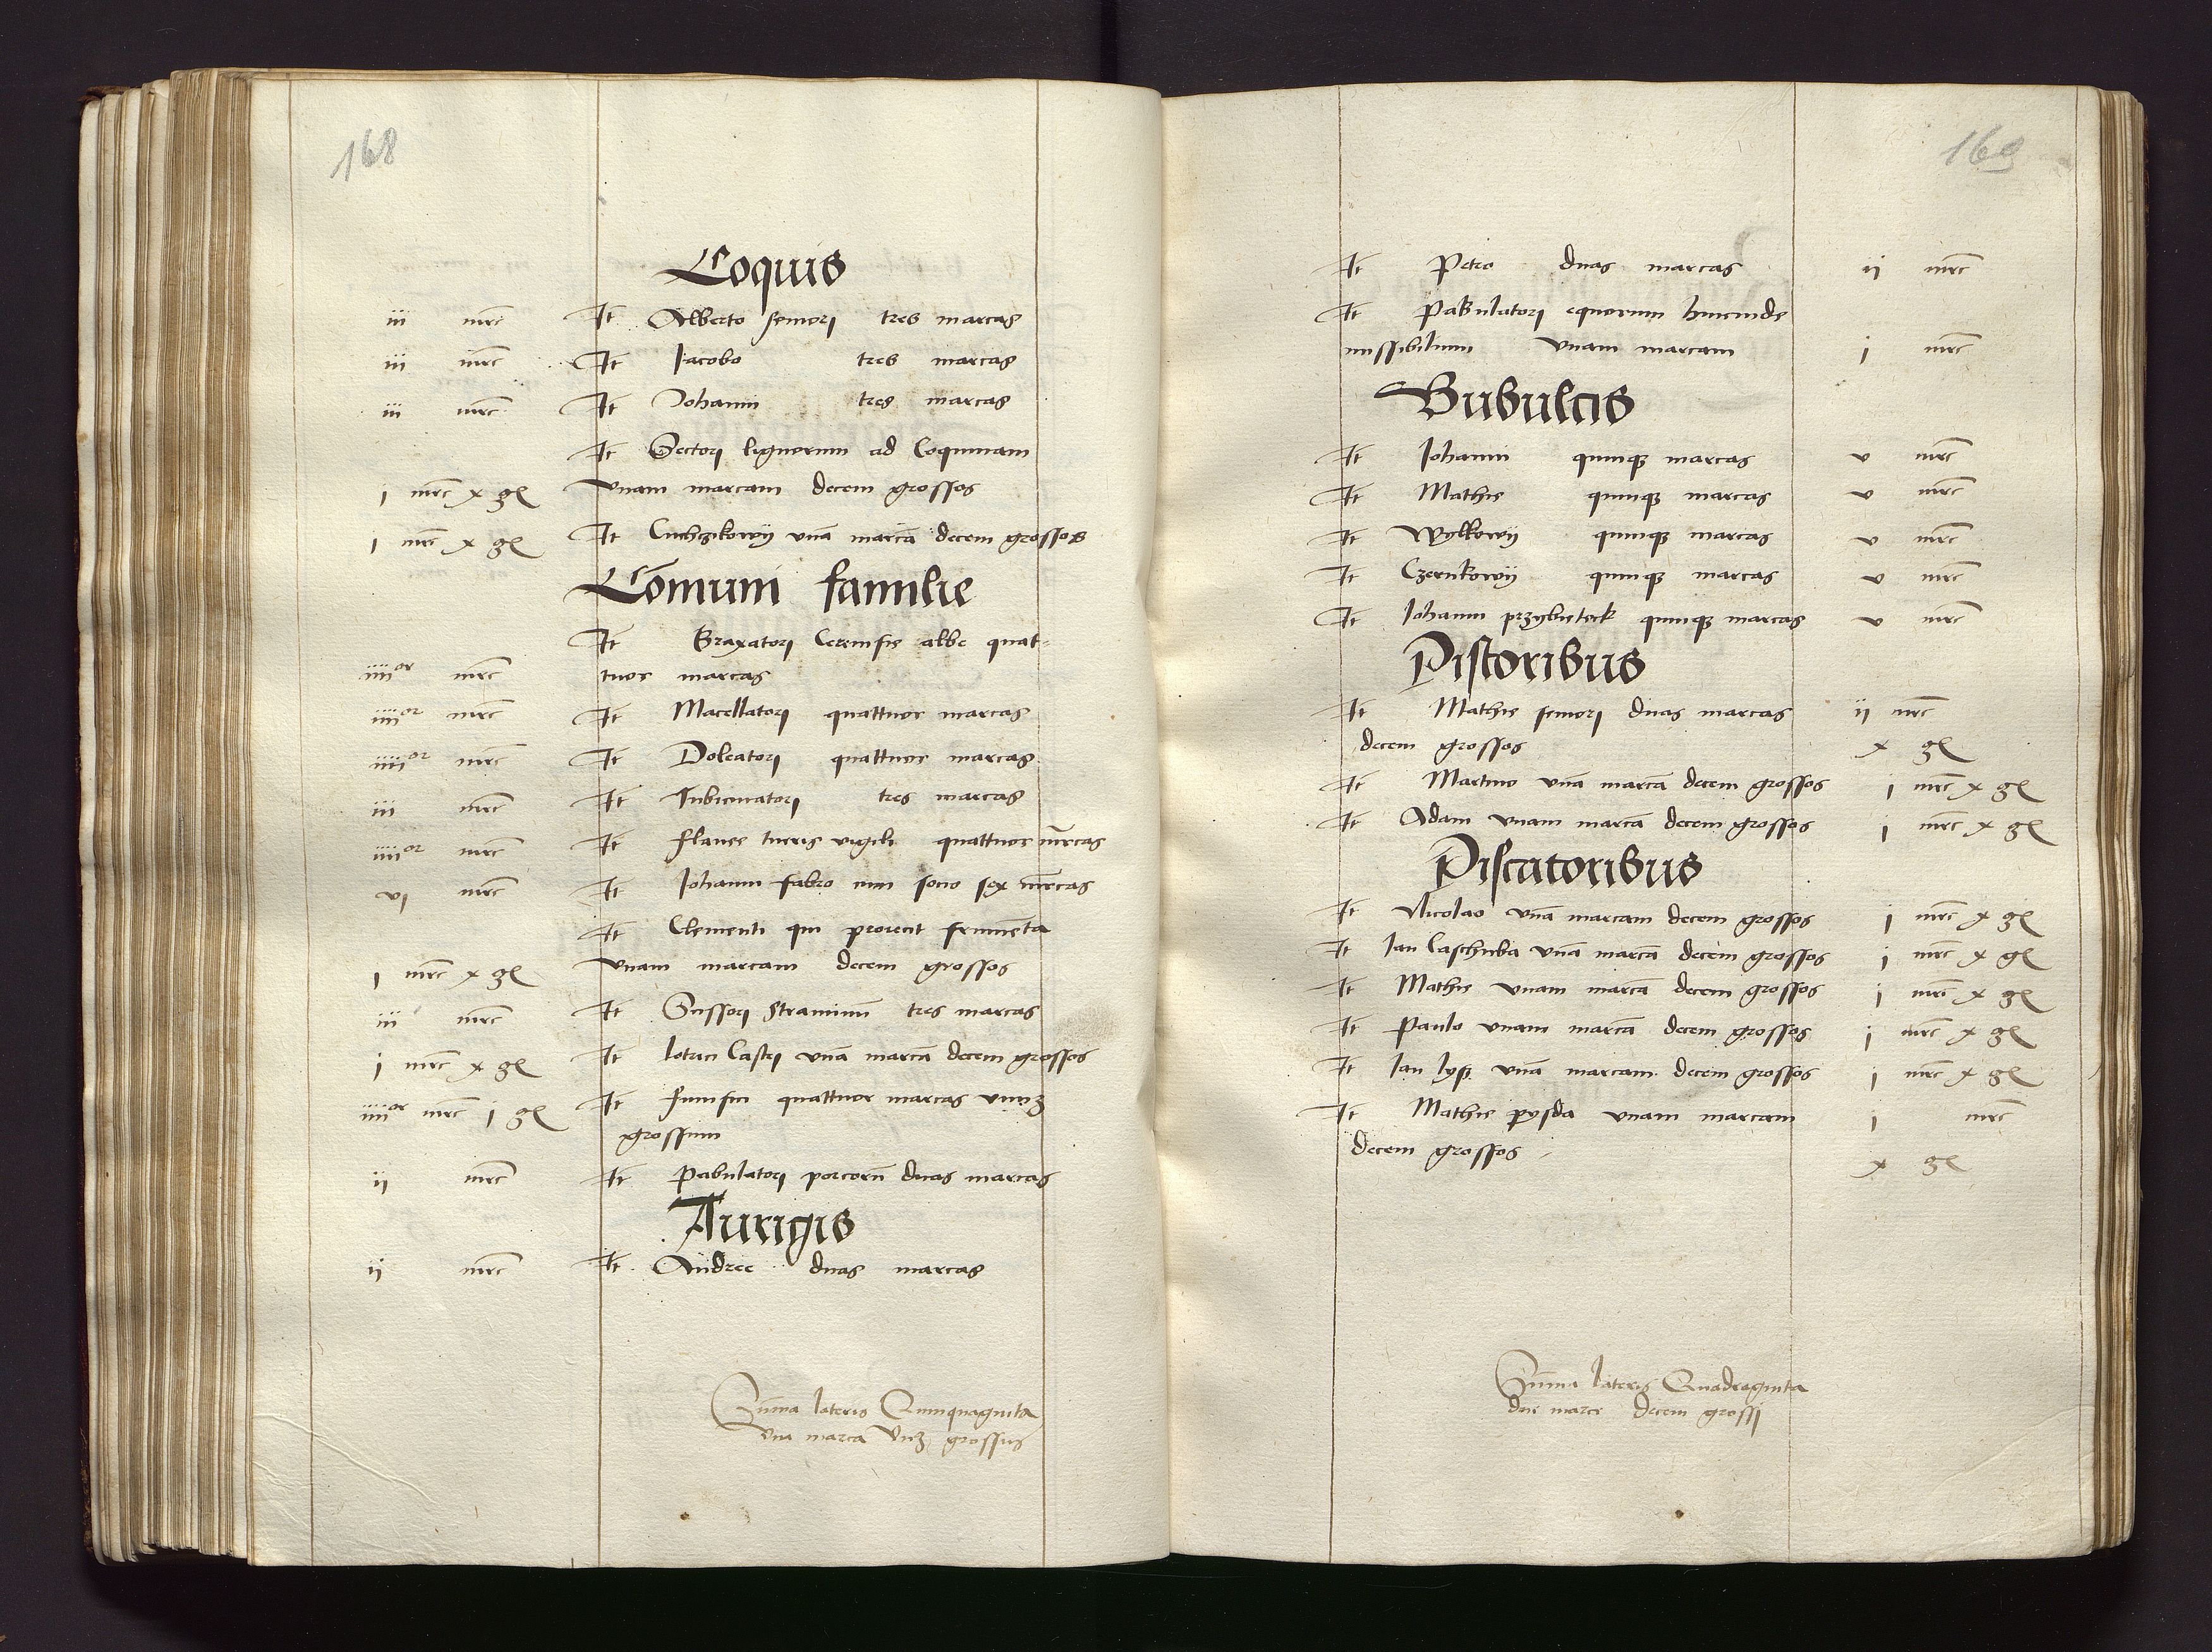 168
Coquis
iii mrc It Alberto seniori tres marcas
iii mrc It Jacobo tres marcas
iii mrc It Johanni tres marcas
It Sectori lignorum ad Coquinam
j mrc x gl vnam marcam decem grossos
j mrc x gl It Cuchzikowÿ vnā marcā decem grossos
Cōmuni familie
It Braxatori Cereuisie albe quat-
iiiior mrc tuor marcas
iiiior mrc It Macellatori quattuor marcas
iiiior mrc It Doleatori quattuor marcas
iii mrc It Tubicinatori tres marcas
iiiior mrc It flauee turris vigili quattuor mrcas
vj mrc It Johanni fabro cum socio sex mrcas
It Clementi qui proicit frumēta
j mrc x gl vnam marcam decem grossos
iii mrc It straminum tres marcas
j mrc x gl It lotrici Castri vnā marcā decem grossos
iiiior mrc j gl It quattuor marcas vnuȝ
grossum
ij mrc It Pabulatori porcorū duas marcas
Aurigis
ij mrc It Andree duas marcas
Sūma lateris Quinquaginta
vna marca vnȝ grossus
169
It Petro duas marcas ij mrc
It Pabulatori equorum hincinde
missibilium vnam marcam j mrc
Bubulcis
It Johanni quinqȝ marcas v mrc
It Mathie quinqȝ marcas v mrc
It Wylkowÿ quinqȝ marcas v mrc
It Czernkowÿ quinqȝ marcas v mrc
It Johanni przybieteck quinqȝ marcas v mrc
Pistoribus
It Mathie seniori duas marcas ij mrc
decem grossos x gl
It Martino vnā marcā decem grossos j mrc x gl
It Adam vnam marcā decem grossos j mrc x gl
Piscatoribus
It Nicolao vnā marcam decem grossos j mrc x gl
It Jan Caschuba vnā marcā decem grossos j mrc x gl
It Mathie vnam marcā decem grossos j mrc x gl
It Paulo vnam marcā decem grossos j mrc x gl
It Jan lyss vnā marcam decem grossos j mrc x gl
It Mathie pysda vnam marcam j mrc
decem grossos x gl
Sūma lateris Quadraginta
due marce decem grossi